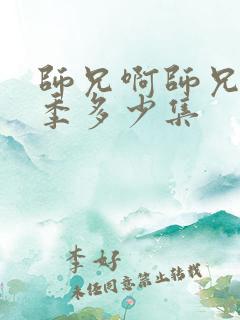 師兄啊師兄
季多少集
李好
未经同意禁止转载